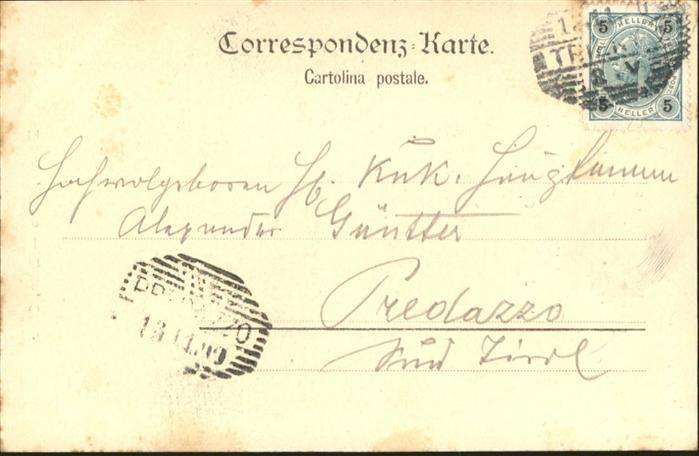 Correspondenz-Karte.
Cartolina postale.
5 HELLER 5
5 HELLER 5
Hochwolgeboren H. KuK. Hauptmann
Alexander Güntter
Predazzo
Süd Tirol
PREDAZZO
13.11.00